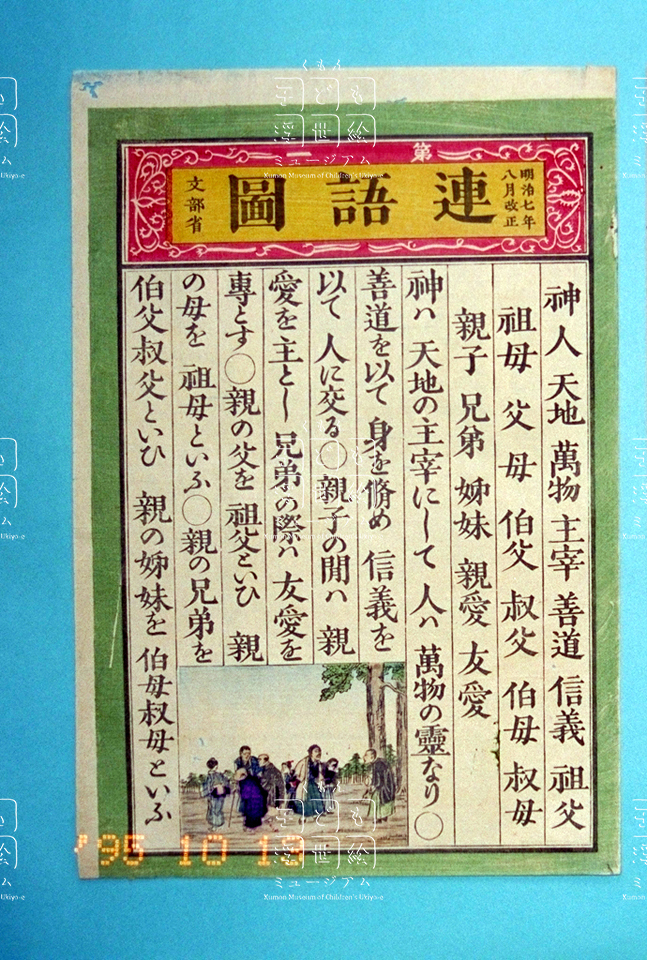 第一
連語圖
明治七年
八月改正
文部省
神人 天地 萬物 主宰 善道 信義 祖父
祖母 父 母 伯父 叔父 伯母 叔母
親子 兄弟 姊妹 親愛 友愛
神ハ 天地の主宰にして 人ハ 萬物の靈なり〇
善道を以て 身を脩め 信義を
以て 人に交る〇親子の間ハ 親
愛を主とし 兄弟の際ハ 友愛を
專とす〇親の父を 祖父といひ 親
の母を 祖母といふ〇親の兄弟を
伯父叔父といひ 親の姊妹を 伯母叔母といふ
'95 10 13
くもん
子ども
浮世絵
ミュージアム
Kumon Museum of Children's Ukiyo-e